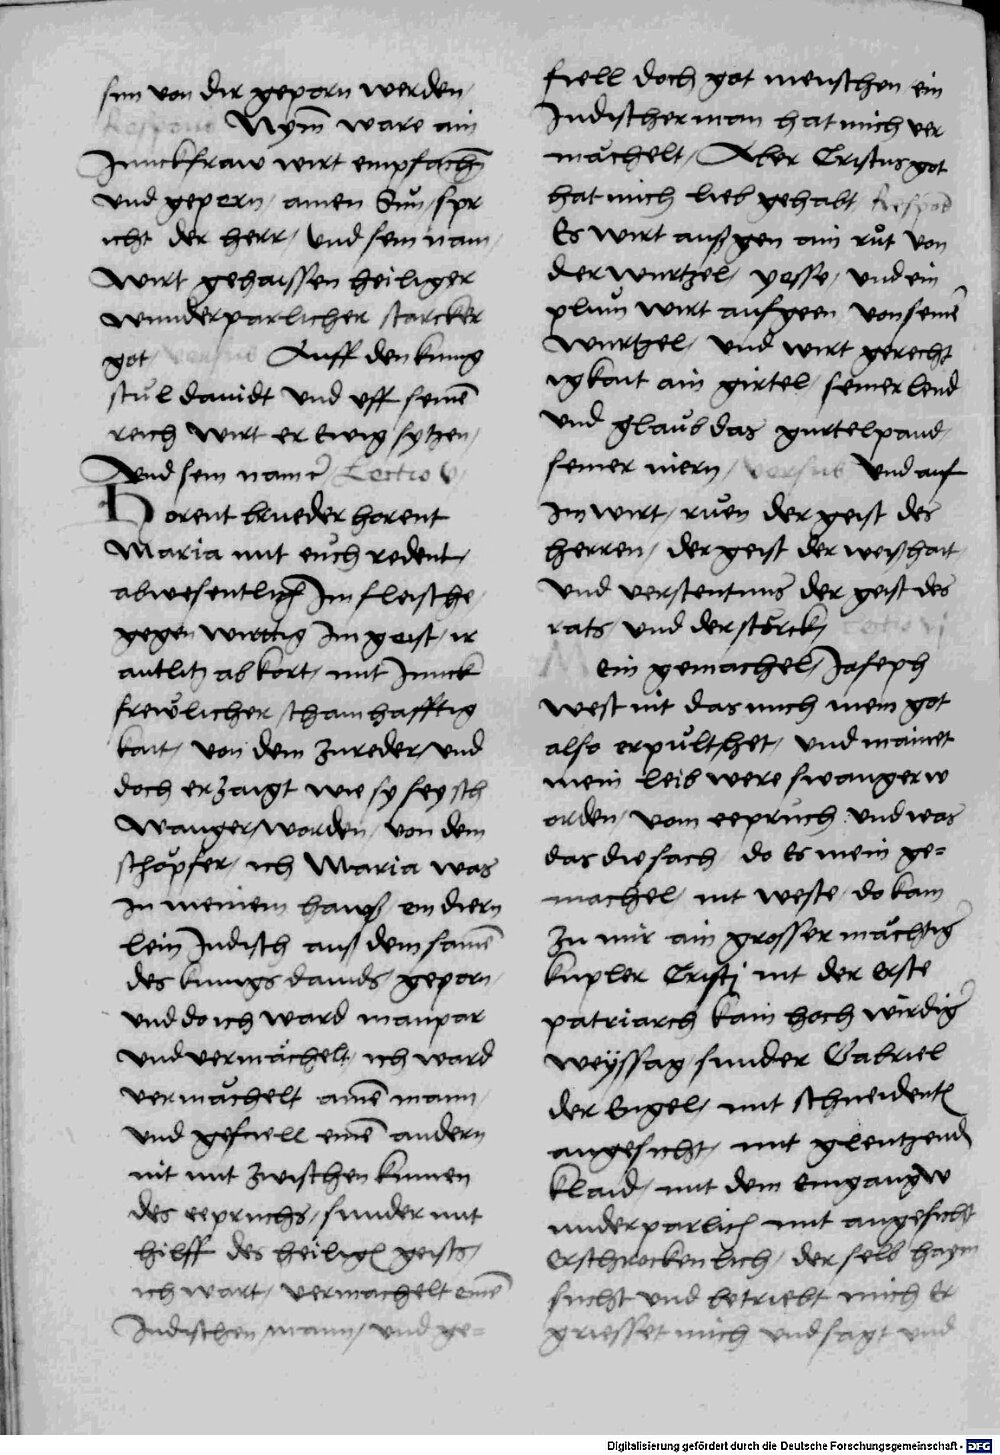 sun von dir geporn werden,
Respons Nym ware ain
Junckfraw wirt empfachē
und gepern, ainen Sůn, spr
icht der herr, und sein nam,
wirt gehaissen heiliger
wunderparlicher starcker
got, versus Auff den kunig
stůl dauidt und uff seinē
reich wirt er Ewig sytzen,
Und sein name, Lectio v.
Horent brueder horent
Maria mit eůch redent,
abwesentlich Im fleische,
gegenwirttig Im geist, ir
antlitz abkort, mit Junck
frewlicher schamhafftig
kait, von dem zureder, und
doch erzaigt wie sy sey sch
wanger, worden, von dem
schöpfer, ich Maria was
in meinem hawß, ein diern
lein Judisch auß dem samē
des kunigs dauids, geporn,
und do ich ward manpar
und vermächelt, ich ward
vermächelt ainē mann,
und gefiell einē andern
nit mit zwischen kumen
des eepruchs, sunder mit
hilff des heilig geists,
ich wart, vermachelt einē
Judischen, mann, und ge=
fiell doch got menschen, ein
Judischer man hat mich ver
mächelt, Aber Cristus got
hat mich lieb gehabt Respons
Es wirt außgen ain růt von
der wurtzel, yesse, und ein
plům wirt aufgeen von seinē
wurtzel, und wirt gerecht
igkait ain girtel, seiner lend
und glaůb das gurtelpand,
seiner niern, versus Und auf
im wirt, růen der geist des
herren, der geist der weißhait
und verstentnuss der geist des
rats, und der störck, Lectio vj
Mein gemachel, Joseph
west nit das mich mein got
also erpůlthet, und mainet
mein leib were swanger w
orden, vom eepruch und was
das die sach, do Es mein ge=
machel, nit weste, do kam
zu mir ain grosser mächtig
kupler Cristj nit der Erste
patriarch kain hoch wirdiger
weyssag, sunder Gabriel
der Engel, mit schneident
angesicht, mit glentzend
klaid, mit dem eingang w
underparlich mit angesicht
erschrockenlich, der selb haym
sucht und betriebt mich Er
griesset mich und sagt und
Digitalisierung gefördert durch die Deutsche Forschungsgemeinschaft - DFG